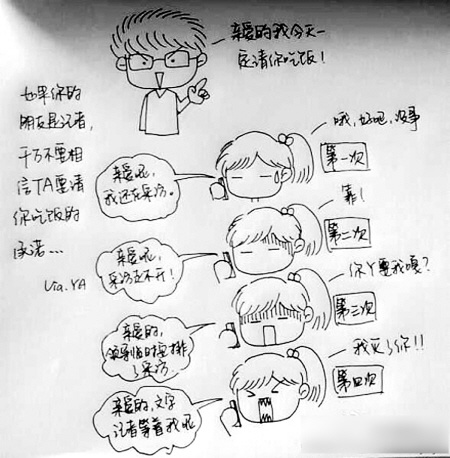 亲爱的我今天一
定请你吃饭！
如果你的
朋友是记者，
千万不要相
信TA要请
你吃饭的
承诺...
via.YA
亲爱哒，
我还在采访。
哦，好吧，没事
第一次
亲爱哒，
采访走不开！
靠！
第二次
亲爱的，
领导临时安排
了采访.
你丫耍我嘎？
第三次
亲爱的，文字
记者等着我呢
我灭了你！！
第四次